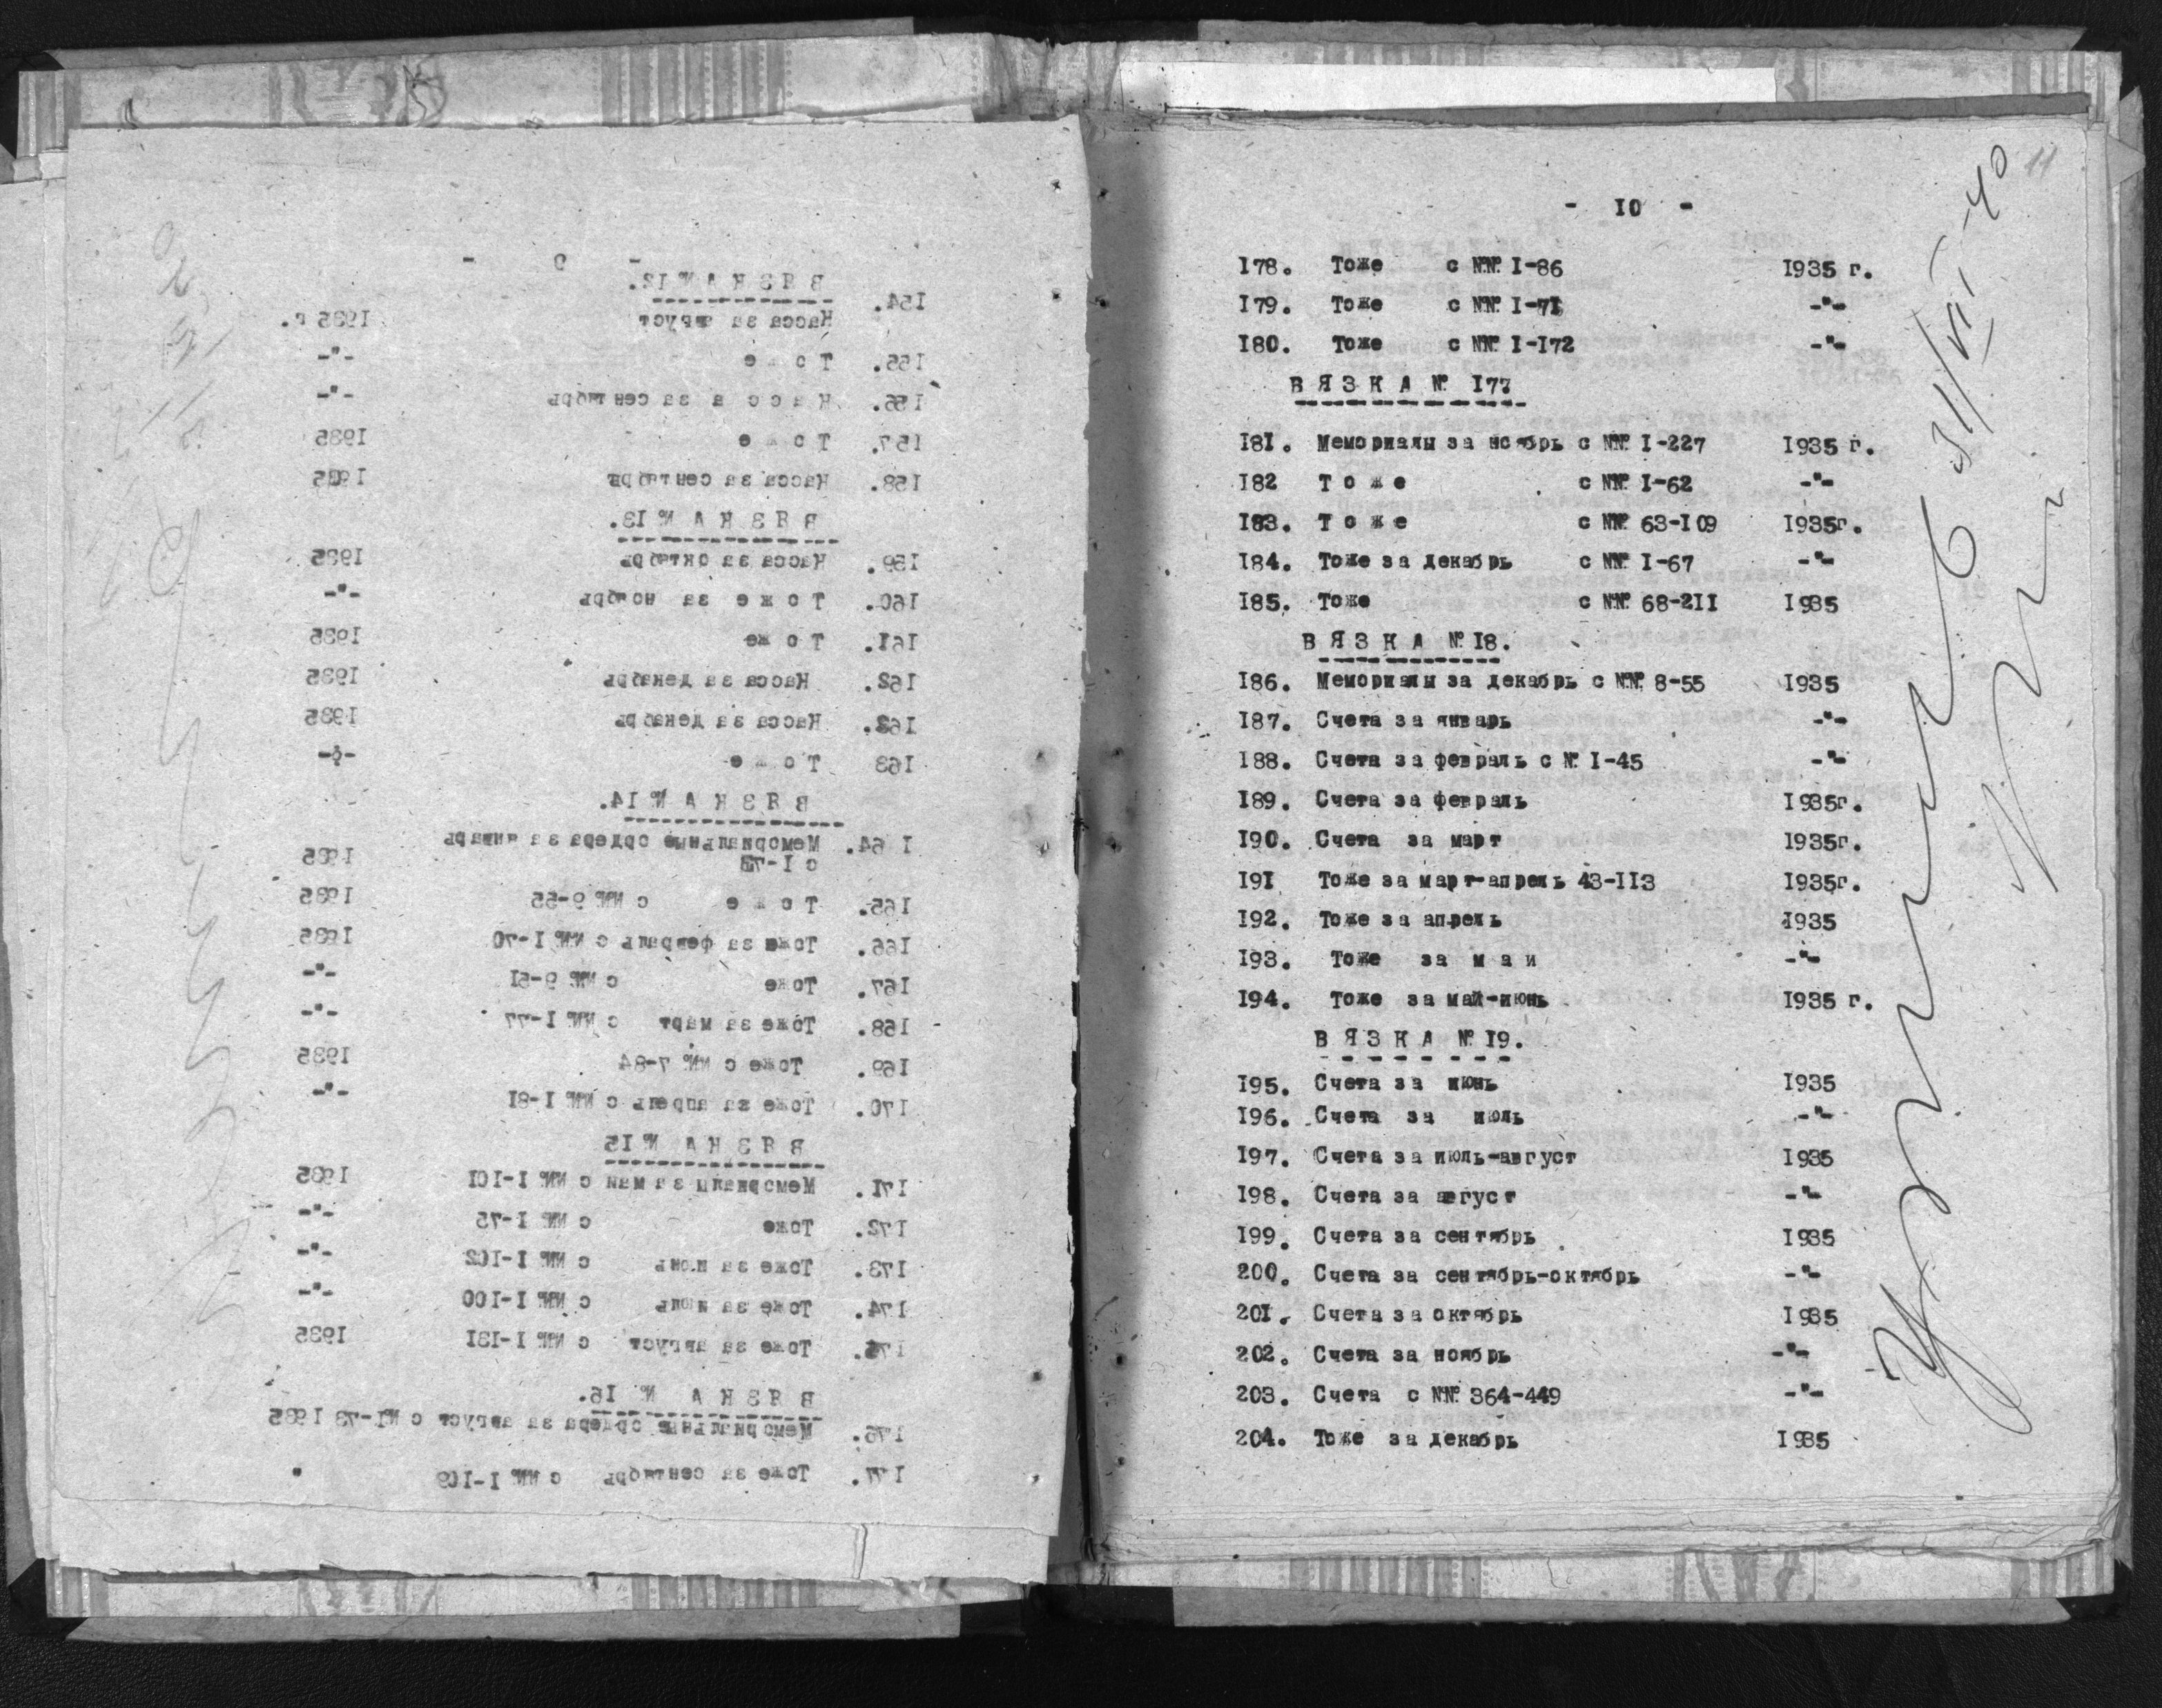 - 9 -
ВЯЗКА № 12.
154. Касса за август 1935 г.
155. Тоже -"-
156. Касса за сентябрь -"-
157. Тоже 1935
158. Касса за сентябрь 1935
ВЯЗКА № 13.
159. Касса за октябрь 1935
160. Тоже за ноябрь -"-
161. Тоже 1935
162. Касса за декабрь 1935
163. Касса за декабрь 1935
163 Тоже -"-
ВЯЗКА № 14.
164. Мемориальные ордера за январь
с 1-73 1935
165. Тоже с №№ 9-55 1935
166. Тоже за февраль с №№ 1-70 1935
167. Тоже с №№ 9-51 -"-
168. Тоже за март с №№ 1-77 -"-
169. Тоже с №№ 7-84 1935
170. Тоже за апрель с №№ 1-81 -"-
ВЯЗКА № 15
171. Мемориалы за май с №№ 1-101 1935
172. Тоже с №№ 1-75 -"-
173. Тоже за июнь с №№ 1-102 -"-
174. Тоже за июль с №№ 1-100 -"-
175. Тоже за август с №№ 1-131 1935
ВЯЗКА № 16.
176. Мемориальные ордера за август с №1-73 1935
177. Тоже за сентябрь с №№ 1-109 "
11
- 10 -
178. Тоже с №№ 1-86 1935 г.
179. Тоже с №№ 1-71 -"-
180. Тоже с №№ 1-172 -"-
ВЯЗКА № 177
181. Мемориалы за ноябрь с №№ 1-227 1935 г.
182 Тоже с №№ 1-62 -"-
183. Тоже с №№ 63-109 1935г.
184. Тоже за декабрь с №№ 1-67 -"-
185. Тоже с №№ 68-211 1935
ВЯЗКА № 18.
186. Мемориалы за декабрь с №№ 8-55 1935
187. Счета за январь -"-
188. Счета за февраль с № 1-45 -"-
189. Счета за февраль 1935г.
190. Счета за март 1935г.
191 Тоже за март-апрель 43-113 1935г.
192. Тоже за апрель 1935
193. Тоже за маи -"-
194. Тоже за май-июнь 1935 г.
ВЯЗКА № 19.
195. Счета за июнь 1935
196. Счета за июль -"-
197. Счета за июль-август 1935
198. Счета за август -"-
199. Счета за сентябрь 1935
200. Счета за сентябрь-октябрь -"-
201. Счета за октябрь 1935
202. Счета за ноябрь -"-
203. Счета с №№ 364-449 -"-
204. Тоже за декабрь 1935
31/VII-40